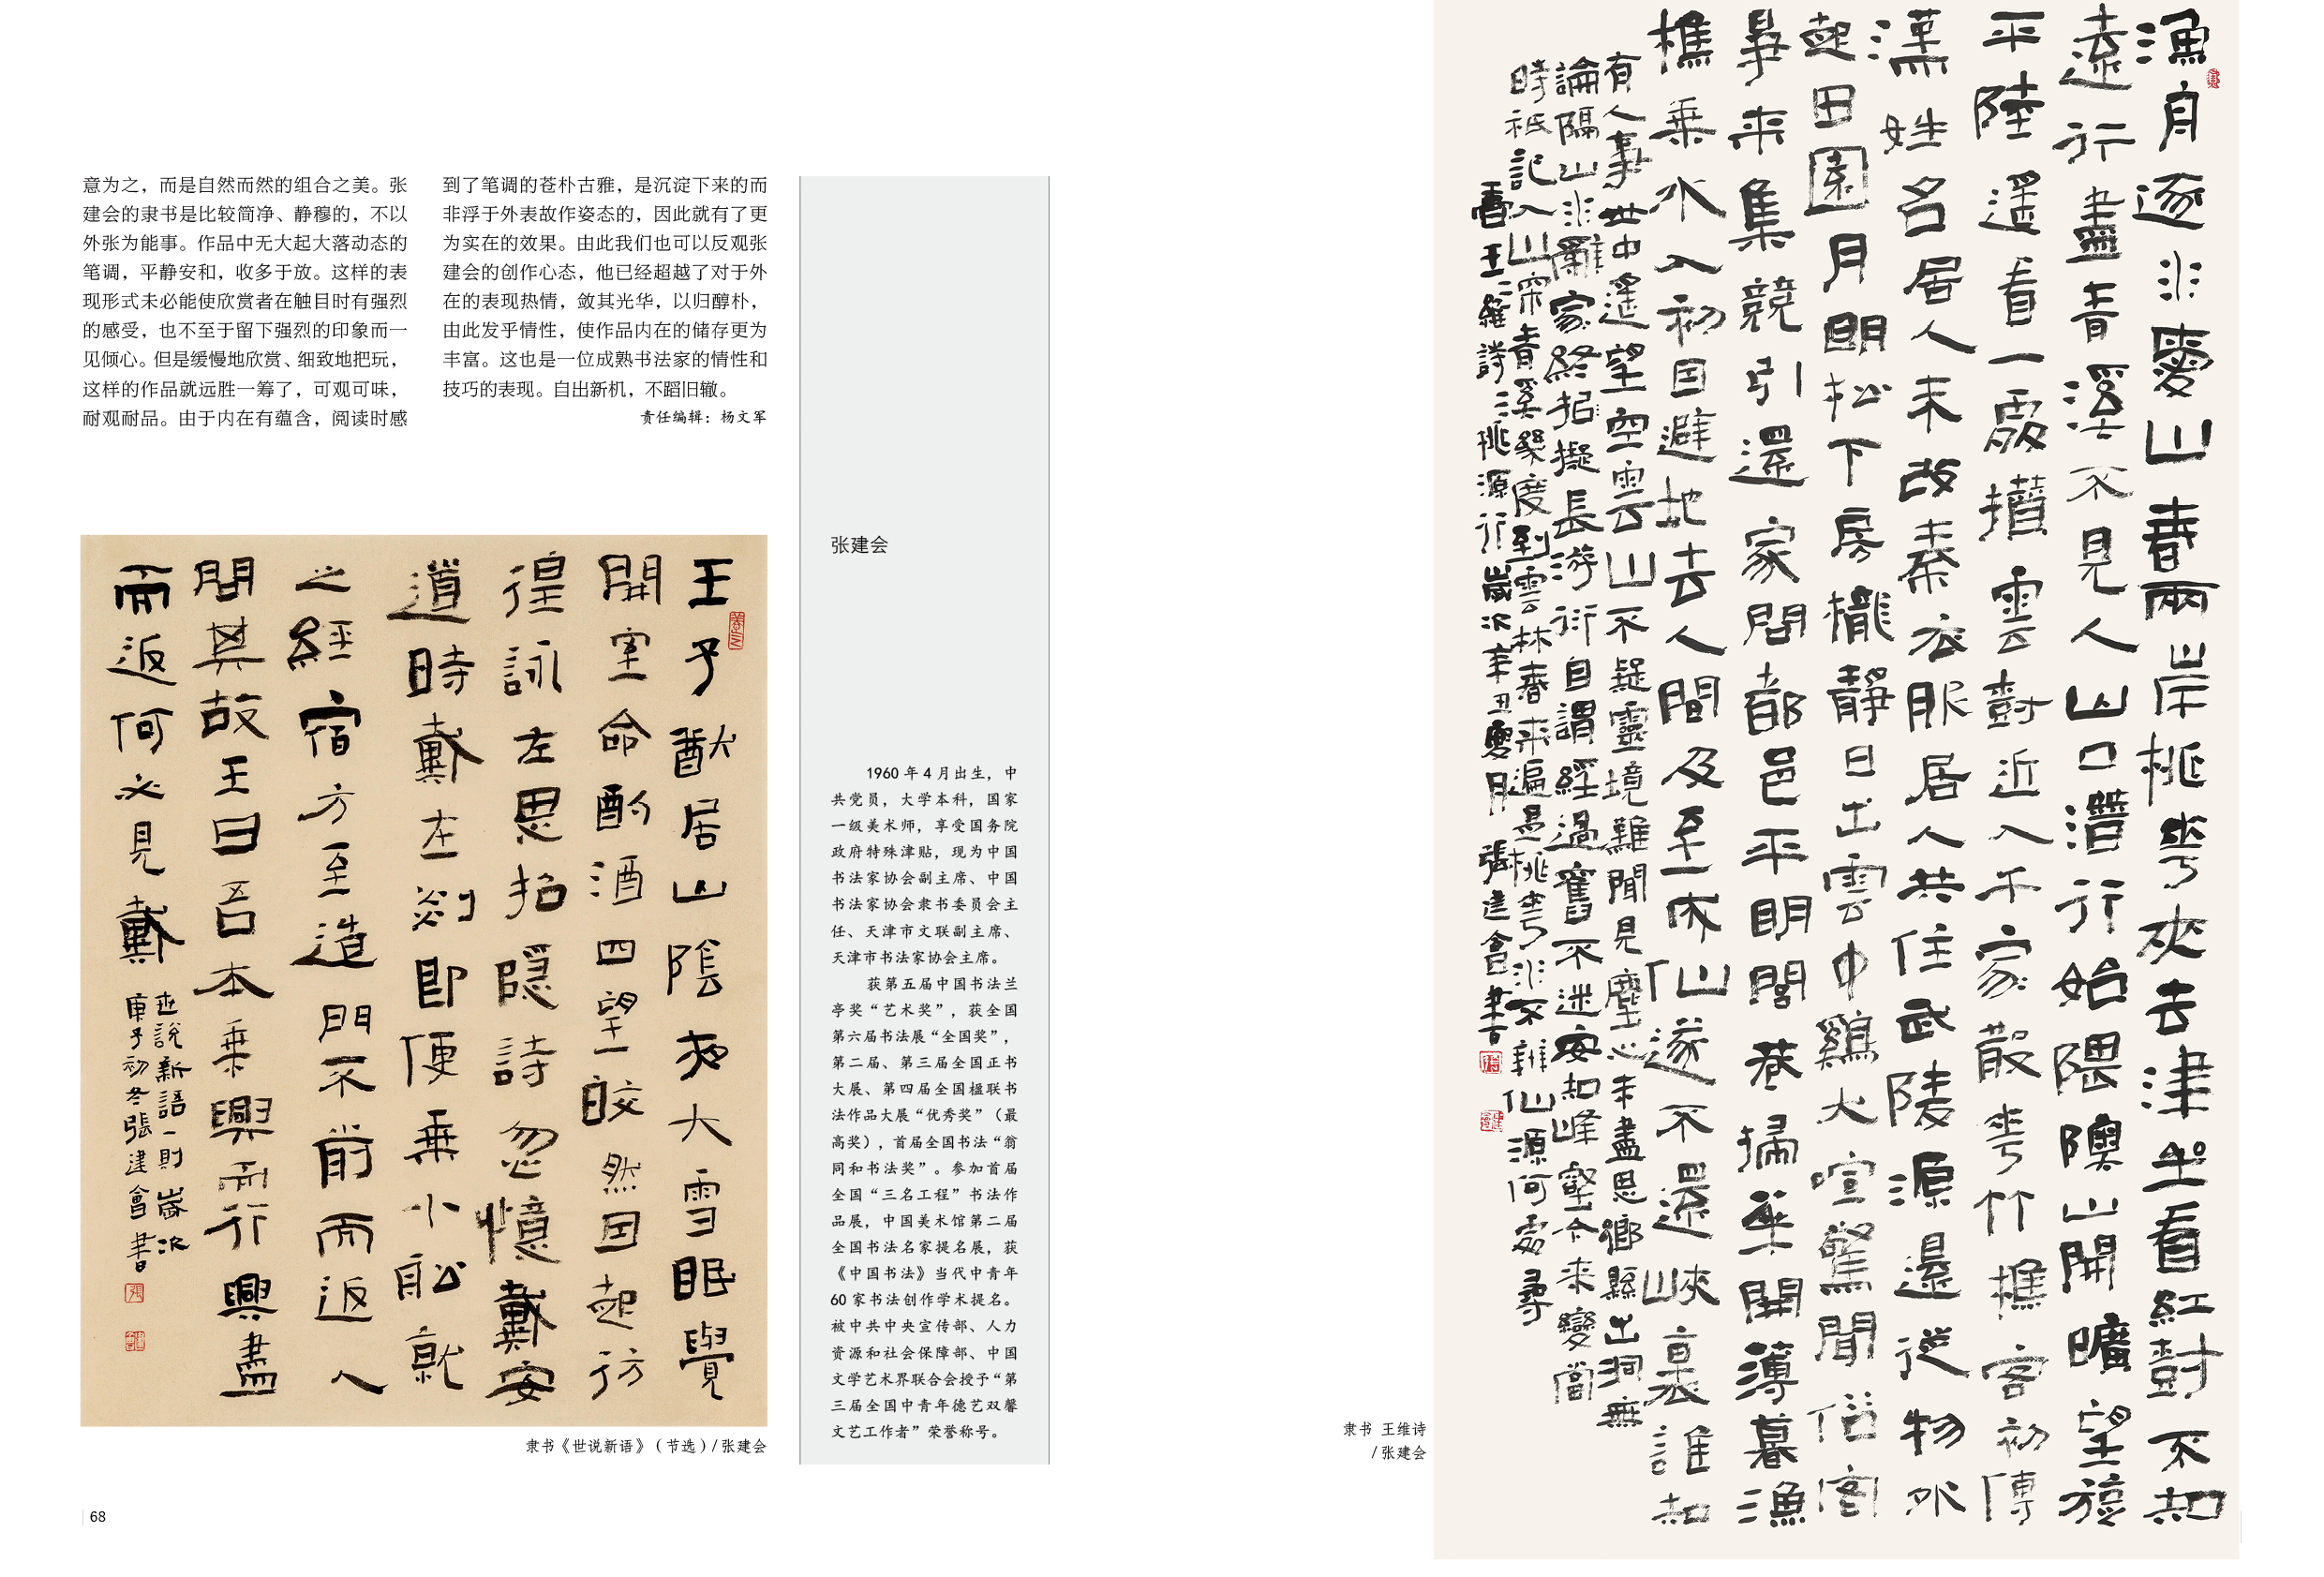 意为之，而是自然而然的组合之美。张
建会的隶书是比较简净、静穆的，不以
外张为能事。作品中无大起大落动态的
笔调，平静安和，收多于放。这样的表
现形式未必能使欣赏者在触目时有强烈
的感受，也不至于留下强烈的印象而一
见倾心。但是缓慢地欣赏、细致地把玩，
这样的作品就远胜一筹了，可观可味，
耐观耐品。由于内在有蕴含，阅读时感
到了笔调的苍朴古雅，是沉淀下来的而
非浮于外表故作姿态的，因此就有了更
为实在的效果。由此我们也可以反观张
建会的创作心态，他已经超越了对于外
在的表现热情，敛其光华，以归醇朴，
由此发乎情性，使作品内在的储存更为
丰富。这也是一位成熟书法家的情性和
技巧的表现。自出新机，不蹈旧辙。
责任编辑：杨文军
王子猷居山陰夜大雪眠覺
開室命酌酒四望皎然因起彷
徨詠左思招隱詩忽憶戴安
道時戴在剡即便乘小船就
之經宿方至造門不前而返人
問其故王曰吾本乘興而行興盡
而返何必見戴
世說新語一則歲次
庚子初冬張建會書
隶书《世说新语》（节选）/张建会
68
张建会
1960 年 4 月出生，中
共党员，大学本科，国家
一级美术师，享受国务院
政府特殊津贴，现为中国
书法家协会副主席、中国
书法家协会隶书委员会主
任、天津市文联副主席、
天津市书法家协会主席。
获第五届中国书法兰
亭奖“艺术奖”，获全国
第六届书法展“全国奖”，
第二届、第三届全国正书
大展、第四届全国楹联书
法作品大展“优秀奖”（最
高奖），首届全国书法“翁
同和书法奖”。参加首届
全国“三名工程”书法作
品展，中国美术馆第二届
全国书法名家提名展，获
《中国书法》当代中青年
60 家书法创作学术提名。
被中共中央宣传部、人力
资源和社会保障部、中国
文学艺术界联合会授予“第
三届全国中青年德艺双馨
文艺工作者”荣誉称号。
漁舟逐水愛山春兩岸桃華夾去津坐看紅對不知
遠行盡青溪不見人山口潛行始隈隩山開曠望旋
平陸遥看一處攢雲對近入千家散華竹樵客初傳
漢姓名居人未改秦衣服居人共住武陵源還從物外
起田園月明松下房櫳靜日出雲中鷄犬喧驚聞俗客
爭來集競引還家問都邑平明閭巷掃華開薄暮漁
樵乘水入初因避地去人間及至成仙遂不還峽裏誰知
有人事世中遥望空雲山不疑靈境難聞見塵心未盡思鄉縣出洞無
論隔山水辭家終拟擬長游衍自謂經過舊不迷安知峰壑今來變當
時衹記入山深青溪幾度到雲林春來遍是桃華水不辨仙源何處尋
書王維詩桃源行歲次辛丑夏月張建會書
隶书 王维诗
/ 张建会